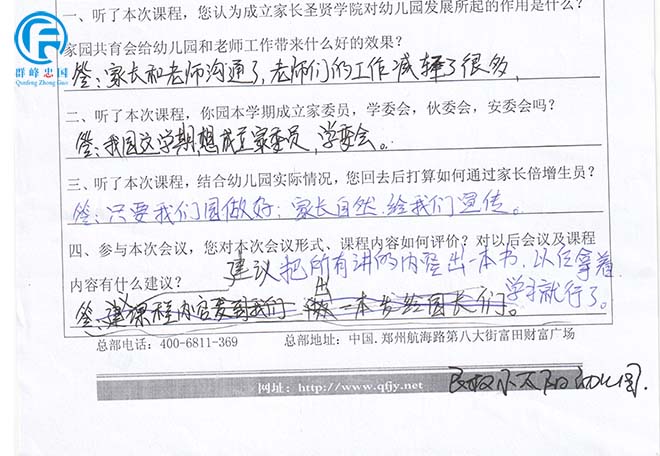 群峰忠国
Qunfeng Zhong Guo
一、听了本次课程，您认为成立家长圣贤学院对幼儿园发展所起的作用是什么？
家园共育会给幼儿园和老师工作带来什么好的效果？
答：家长和老师沟通了，老师们的工作减轻了很多，
二、听了本次课程，你园本学期成立家委员，学委会，伙委会，安委会吗？
答：我园这学期，想成立家委员，学委会。
三、听了本次课程，结合幼儿园实际情况，您回去后打算如何通过家长倍增生员？
答：只要我们园做好：家长自然给我们宣传。
四、参与本次会议，您对本次会议形式、课程内容如何评价？对以后会议及课程
内容有什么建议？
建议把所有讲的内容出一本书，以后拿着
学习就行了。
答：建议课程内容 我们 出一本书给园长们。
总部电话：400-6811-369 总部地址：中国.郑州航海路第八大街富田财富广场
网址：http://www.qfjy.net
民权小太阳幼儿园.